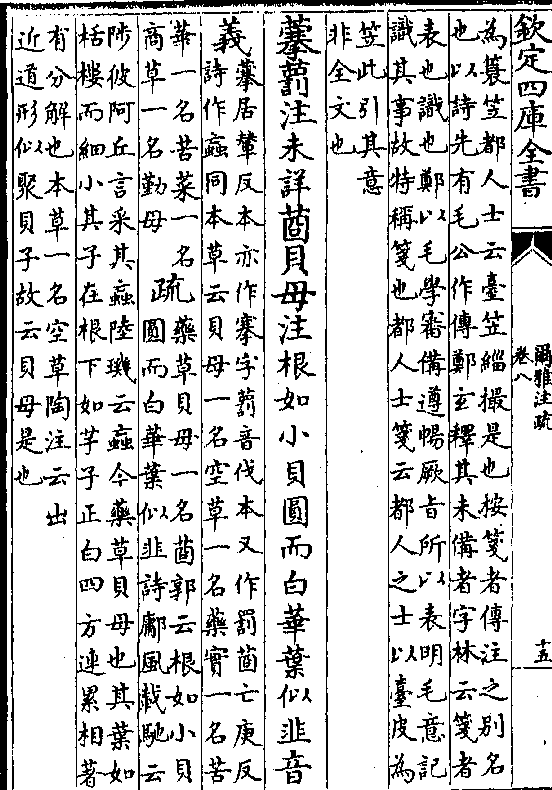 欽定四庫全書
爾雅注疏
卷八
十五
為蓑笠都人士云臺笠緇撮是也按箋者傳注之別名
也以詩先有毛公作傳鄭玄釋其未備者字林云箋者
表也識也鄭以毛學審備遵暢厥旨所以表明毛意記
識其事故特稱箋也都人士箋云都人之士以臺皮為
笠此引其意
非全文也
藆藅注未詳莔貝母注根如小貝圓而白華葉似韭音
義藆居輦反本亦作搴字藅音伐本又作罰莔亡庚反
詩作蝱同本草云貝母一名空草一名藥實一名苦
華一名苦菜一名
商草一名勤母
疏藥草貝母一名莔郭云根如小貝
圓而白華葉似韭詩鄘風載馳云
陟彼阿丘言采其蝱陸璣云蝱今藥草貝母也其葉如
栝樓而細小其子在根下如芋子正白四方連累相著
有分解也本草一名空草陶注云出
近道形似聚貝子故云貝母是也